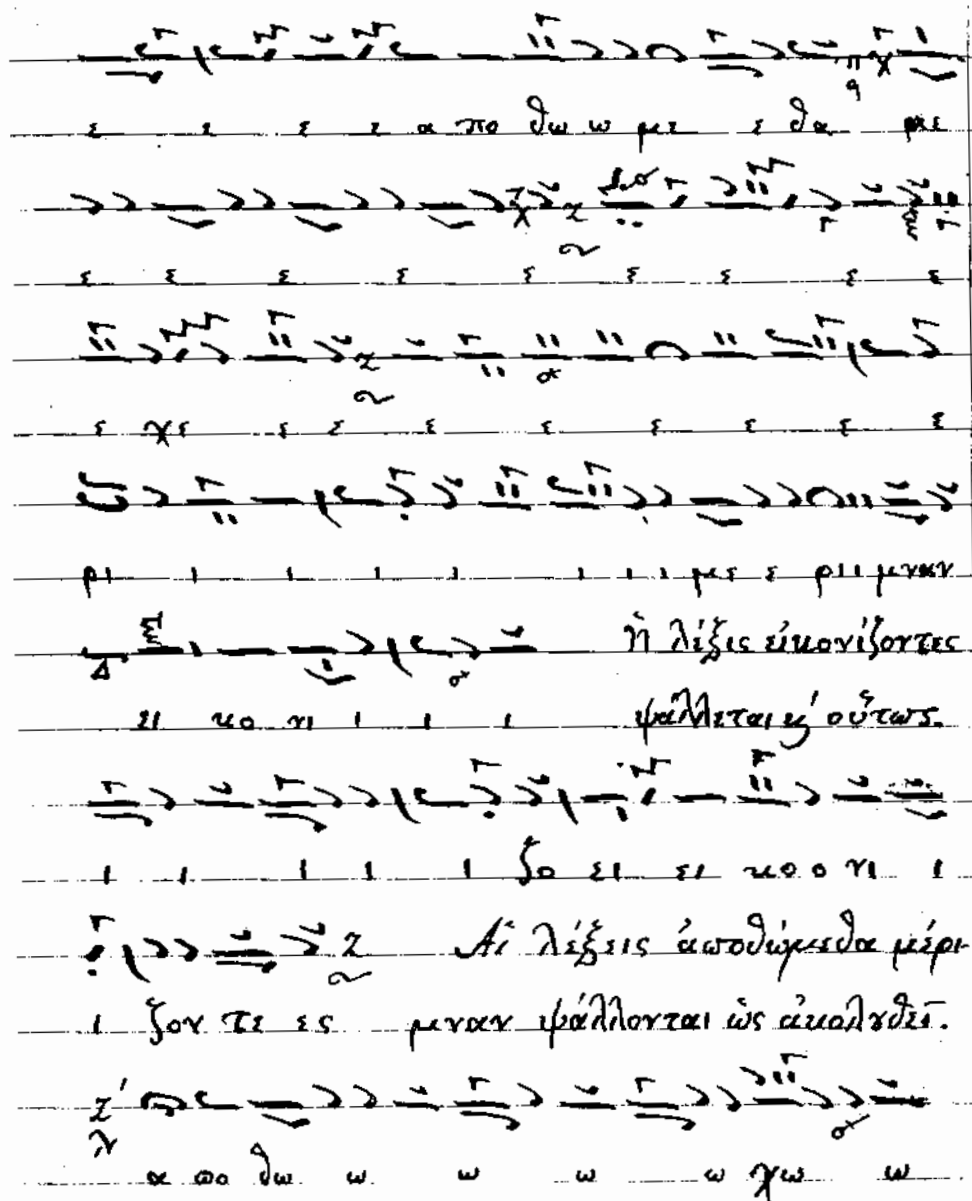 ε ε ε ε α πο θω ω με ε θα με
ε ε ε ε ε ε ε ε
ε χε ε ε ε ε ε ε ε ε
ρι ι ι ι ι ι ι ι με ε ρι ι μναν
ἡ λέξις εἰκονίζοντες
ει κο νι ι ι ι ψάλλεται κ' οὕτως.
ι ι ι ι ι ζο ει ει κο ο νι ι
Αἱ λέξεις ἀποθώμεθα μέρι-
ι ζον τε ες μναν ψάλλονται ὡς ἀκολουθεῖ.
α πο θω ω ω ω ω χω ω